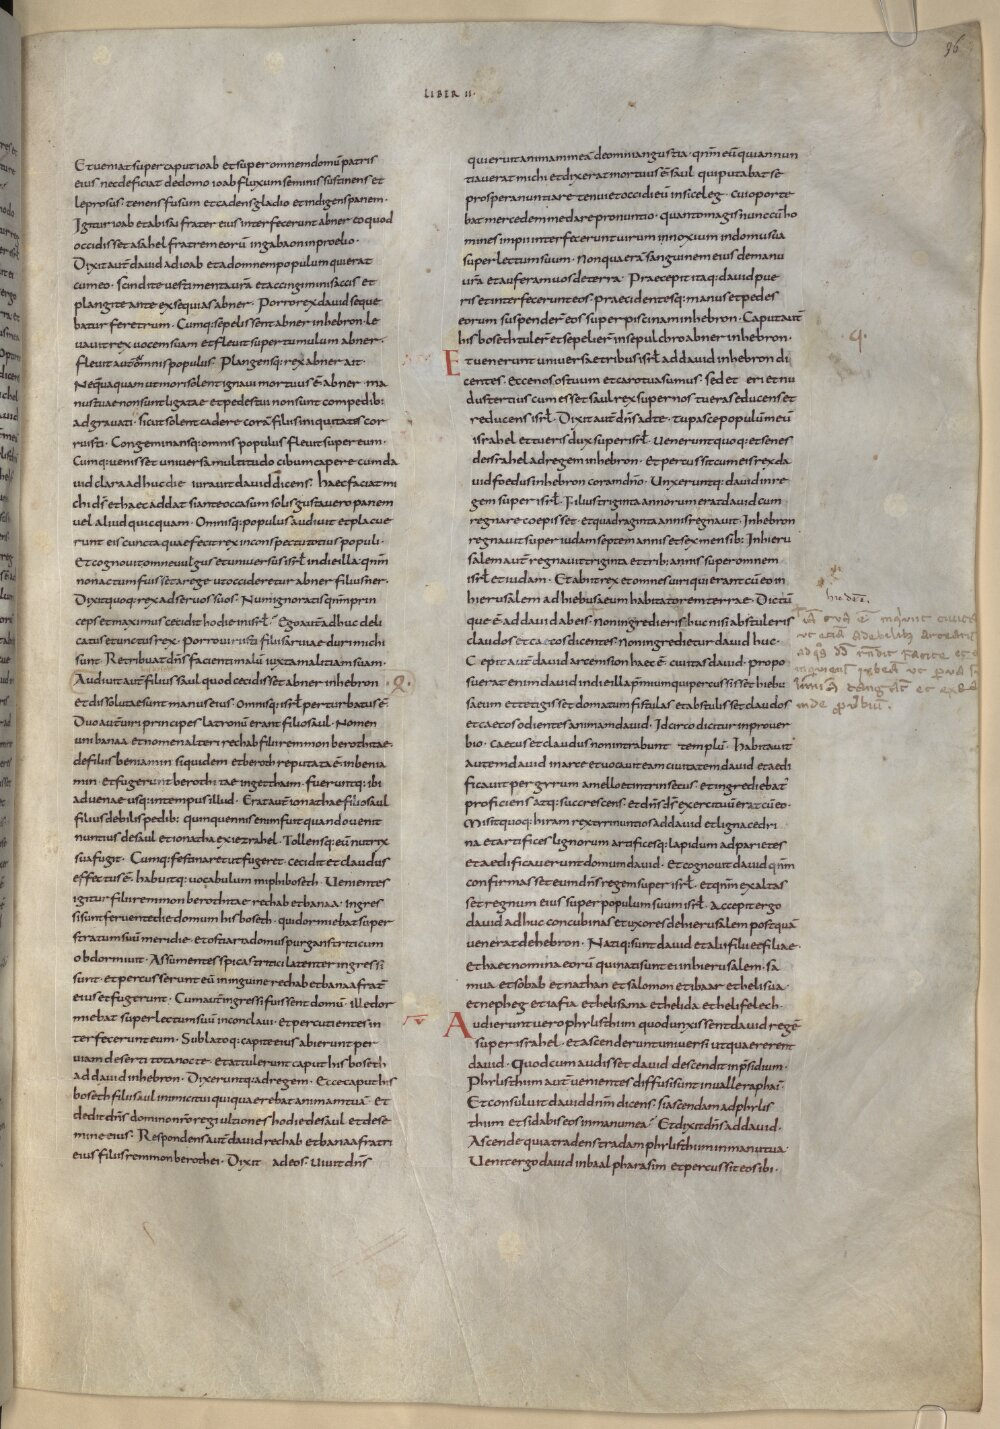 96
LIBER II.
Et ueniat super caput ioab et super omnem domū patris
eius nec deficiat de domo ioab fluxum seminis sustinens et
leprosus. tenens fusum et cadens gladio et indigens panem.
Igitur ioab et abisai frater eius interfecerunt abner eo quod
occidisset asahel fratrem eorū in gabaon in proelio.
Dixit aut̄ dauid ad ioab et ad omnem populum qui erat
cum eo. scindite uestimenta ur̄a et accingimini saccis et
plangite ante exsequias abner. Porro rex dauid seque
batur feretrum. Cumq; sepelissent abner in hebron. le
uauit rex uocem suam et fleuit super tumulum abner.
fleuit aut̄ omnis populus. Plangensq; rex abner ait.
Neq̄uaquam ut mori solent ignaui mortuus ē abner. ma
nus tuae non sunt ligatae et pedes tui non sunt compedib;
adgrauati. sicut solent cadere corā filiis iniquitatis cor
ruisti. Congeminansq; omnis populus fleuit super eum.
Cumq; uenisset uniuersa multitudo cibum capere cum da
uid clara adhuc die iurauit dauid dicens. haec faciat mi
chi ds̄ et haec addat si ante occasum solis gustauero panem
uel aliud quicquam. Omnisq; populus audiuit et placue
runt eis cuncta quae fecit rex in conspectu totius populi.
Et cognouit omne uulgus et uniuersus isrl̄ in die illa qn̄m
non actum fuisset a rege ut occideretur abner filius ner.
Dixit quoq; rex ad seruos suos. Num ignoratis qn̄m prin
ceps et maximus cecidit hodie in isrl̄. Ego aut̄ adhuc deli
catus et unctus rex. Porro uiri isti filii saruiae duri michi
sunt. Retribuat dn̄s facienti malū iuxta malitiam suam.
Audiuit aut̄ filius saul quod cecidisset abner in hebron .2.
et dissolutae sunt manus eius. Omnisq; isrl̄ perturbatus ē.
Duo aut̄ uiri principes latronū erant filio saul. Nomen
uni banaa et nomen alteri rechab filii remmon berothitae.
de filiis beniamin siquidem et beroth reputata ē in benia
min. et fugerunt berothitae in getthaim. fueruntq; ibi
aduenae usq; in tempus illud. Erat aut̄ ionathae filio saul
filius debilis pedib; quinquennis enim fuit quando uenit
nuntius de saul et ionatha ex iezrahel. Tollensq; eū nutrix
sua fugit. Cumq; festinaret ut fugeret. cecidit et claudus
effectus ē. habuitq; uocabulum miphiboseth. Uenientes
igitur filii remmon berothitae rechab et banaa. ingres
si sunt feruente die domum hisboseth. qui dormiebat super
stratum suū meridie. et ostiaria domus purgans triticum
obdormiuit. Assumentes spicas tritici latenter ingressi
sunt. et percusserunt eū in inguine rechab et banaa frat̄
eius et fugerunt. Cum aut̄ ingressi fuissent domū. ille dor
miebat super lectum suū in conclaui. et percutientes in
terfecerunt eum. Sublatoq; capite eius abierunt per
uiam deserti tota nocte. et attulerunt caput hisboseth
ad dauid in hebron. Dixeruntq; ad regem. Ecce caput his
boseth filii saul inimici tui qui quaerebat animam tuā. Et
dedit dn̄s domino nr̄o regi ultiones hodie de saul et de se
mine eius. Respondens aut̄ dauid rechab et banaa fratri
eius filiis remmon berothei. Dixit ad eos. Uiuit dn̄s
qui eruit animam meā de omni angustia. qn̄m eū qui annun
tiauerat michi et dixerat mortuus ē saul qui putabat se
prospera nuntiare tenui et occidi eū in siceleg. cui oporte
bat mercedem me dare pro nuntio. quanto magis nunc cū ho
mines impii interfecerunt uirum innoxium in domo sua
super lectum suum. Non quaerā sanguinem eius de manu
ur̄a et auferam uos de terra. Praecepit itaq; dauid pue
ris et interfecerunt eos. praecidentesq; manus et pedes
eorum suspender̄ eos super piscinam in hebron. Caput aut̄
hisboseth tuler̄ et sepelier̄ in sepulchro abner in hebron.
Et uenerunt uniuersae tribus isrl̄ ad dauid in hebron di
centes. Ecce nos os tuum et caro tua sumus. sed et eri et nu
dustertius cum esset saul rex super nos tu eras educens et
reducens isrl̄. Dixit aut̄ dn̄s ad te. tu pasce populū meū
israhel et tu eris dux super isrl̄. Uenerunt quoq; et senes
de israhel ad regem in hebron. Et percussit cum eis rex da
uid foedus in hebron coram dn̄o. Unxeruntq; dauid in re
gem super isrl̄. Filius triginta annorum erat dauid cum
regnare coepisset. et quadraginta annis regnauit. In hebron
regnauit super iudam septem annis et sex mensib; In hieru
salem aut̄ regnauit triginta et trib; annis super omnem
isrl̄ et iudam. Et abiit rex et omnes uiri qui erant cū eo in
hierusalem ad hiebusaeum habitatorem terrae. Dictū
que ē ad dauid ab eis. Non ingredieris huc nisi abstuleris
claudos et caecos dicentes. Non ingredietur dauid huc.
Cepit aut̄ dauid arcem sion haec ē ciuitas dauid. propo
suerat enim dauid in die illa praemium qui percussisset hiebu
saeum et tetigisset domatum fistulas et abstulisset claudos
et caecos odientes animam dauid. Idcirco dicitur in prouer
bio. Caecus et claudus non intrabunt templū. Habitauit
autem dauid in arce et uocauit eam ciuitatem dauid et aedi
ficauit per gyrum a mello et intrinsecus. et ingrediebat̄
proficiens atq; succrescens. et dn̄s ds̄ exercituū erat cū eo.
Misit quoq; hiram rex tyri nuntios ad dauid et ligna cedri
na et artifices lignorum artificesq; lapidum ad parietes
et aedificauerunt domum dauid. Et cognouit dauid qn̄m
confirmasset eum dn̄s regem super isrl̄. et qn̄m exaltas
set regnum eius super populum suum isrl̄. Accepit ergo
dauid adhuc concubinas et uxores de hierusalem postquā
uenerat de hebron. Natiq; sunt dauid et alii filii et filiae.
et haec nomina eorū qui nati sunt ei in hierusalem. sa
mua et sobab et nathan et salomon et ibaar et helisua
et nepheg et iafia et helisama et helida et helifelech.
Audierunt uero phylisthiim quod unxissent dauid regē
super israhel. et ascenderunt uniuersi ut quaererent
dauid. Quod cum audisset dauid descendit in p̄sidium.
Phylisthiim aut̄ uenientes diffusi sunt in ualle raphaī.
Et consuluit dauid dn̄m dicens. si ascendam ad phylis
thiim et si dabis eos in manu mea. Et dixit dn̄s ad dauid.
Ascende quia tradens tradam phylisthiim in manu tua.
Uenit ergo dauid in baal pharasim et percussit eos ibi.